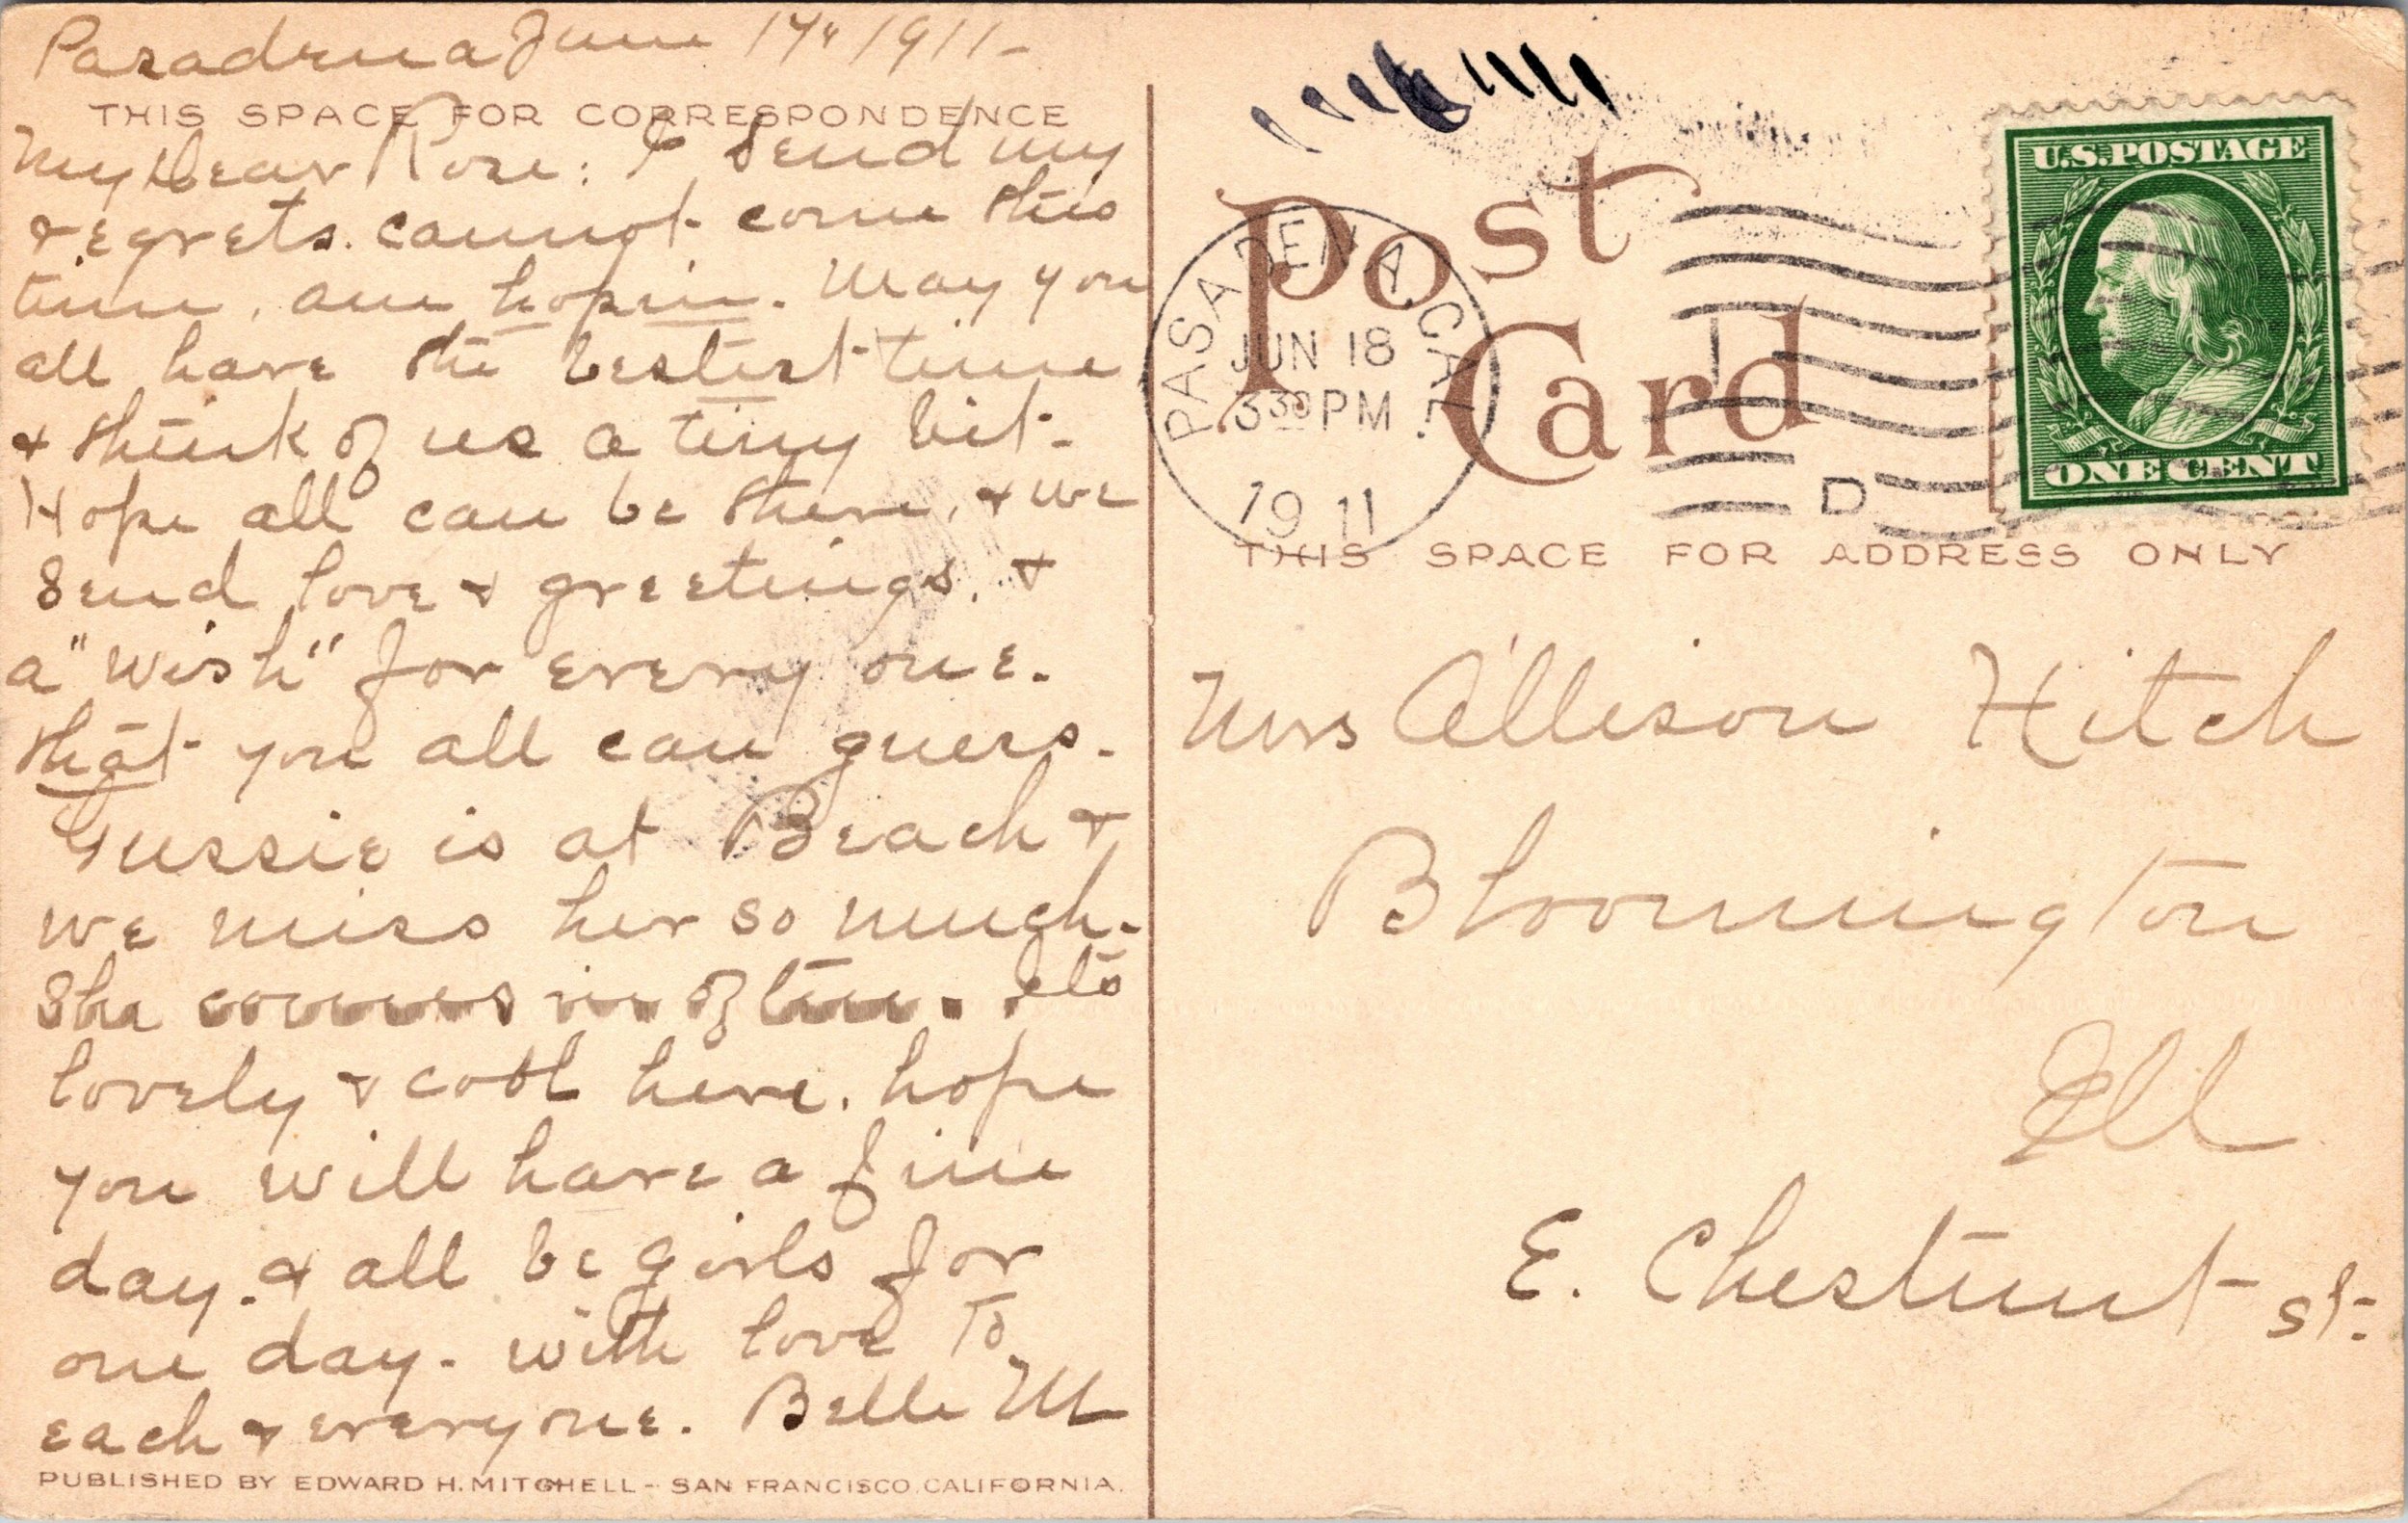 Pasadena June 17" 1911-
THIS SPACE FOR CORRESPONDENCE
My Dear Rose: I send my
regrets. cannot come this
time, am hopin. May you
all have the bestest time
& think of us a tiny bit-
Hope all can be there, & we
send love & greetings. &
a "wish" for every one.
that you all can guess.
Gussie is at Beach &
we miss her so much.
She comes in often. its
lovely & cool here. hope
you will have a fine
day. & all be girls for
one day. with love to
each & everyone. Belle M
PUBLISHED BY EDWARD H. MITCHELL-- SAN FRANCISCO, CALIFORNIA.
Post
Card
PASADENA, CAL.
JUN 18
3 30 PM
1911
D
U.S. POSTAGE
ONE CENT
THIS SPACE FOR ADDRESS ONLY
Mrs Allison Hitch
Bloomington
Ill
E. Chestnut st.